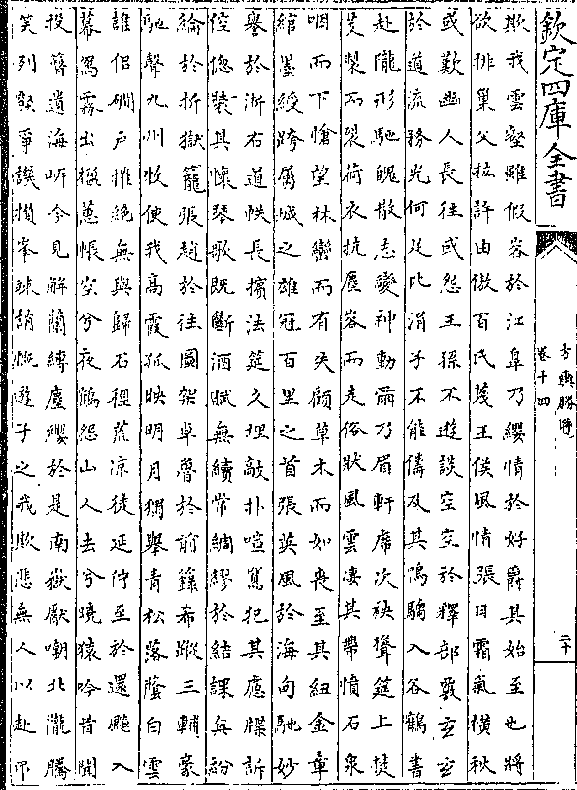 欽定四庫全書
方輿勝覽
卷十四
二十
欺我雲壑雖假容於江臯乃纓情於好爵其始至也將
欲排巢父拉許由傲百氏蔑王侯風情張日霜氣橫秋
或歎幽人長往或怨王孫不遊談空空於釋部覈玄玄
於道流務光何足比涓子不能儔及其鳴騶入谷鶴書
赴隴形馳魄散志變神動爾乃眉軒席次袂聳筵上焚
芰製而裂荷衣抗塵容而走俗狀風雲凄其帶憤石泉
咽而下愴望林巒而有失顧草木而如喪至其紐金章
綰墨綬跨屬城之雄冠百里之首張英風於海甸馳妙
譽於浙右道帙長擯法筵久埋敲扑喧嚻犯其慮牒訴
倥傯裝其懷琴歌既斷酒賦無續常綢繆於結課每紛
綸於折獄籠張趙於往圖架卓魯於前籙希蹤三輔豪
馳聲九州牧使我高霞孤映明月獨舉青松落蔭白雲
誰侶磵戶摧絕無與歸石徑荒涼徒延佇至於還飈入
幕寫霧出楹蕙帳空兮夜鶴怨山人去兮曉猿吟昔聞
投簪遺海岸今見解蘭縛塵纓於是南嶽獻嘲北隴騰
笑列壑爭譏攢峯竦誚慨遊子之我欺悲無人以赴弔